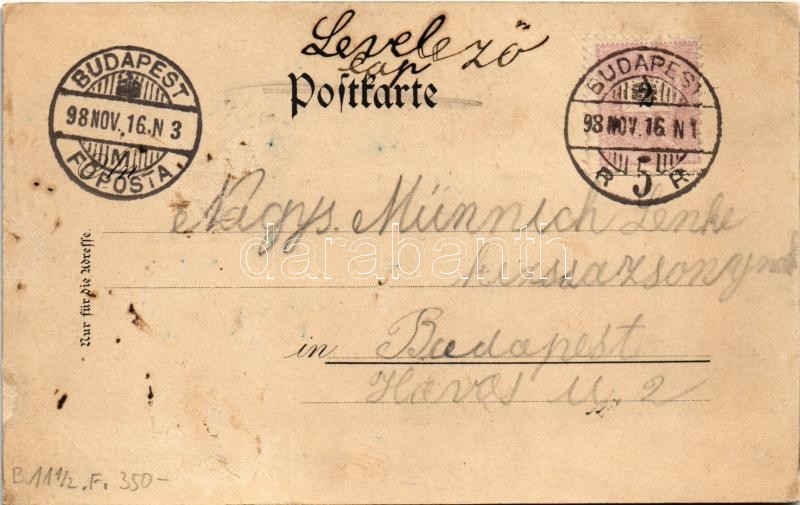 Levelező
lap
Postkarte
BUDAPEST
98 NOV. 16. N 3
M
FŐPOSTA.
BUDAPEST
2
98 NOV. 16. N 1
R 5 R
Nur für die Adresse.
Nagys. Münnich Lenke
kisasszony
in Budapest
Havas u. 2
darabanth
B. 11 1/2. F. 350-